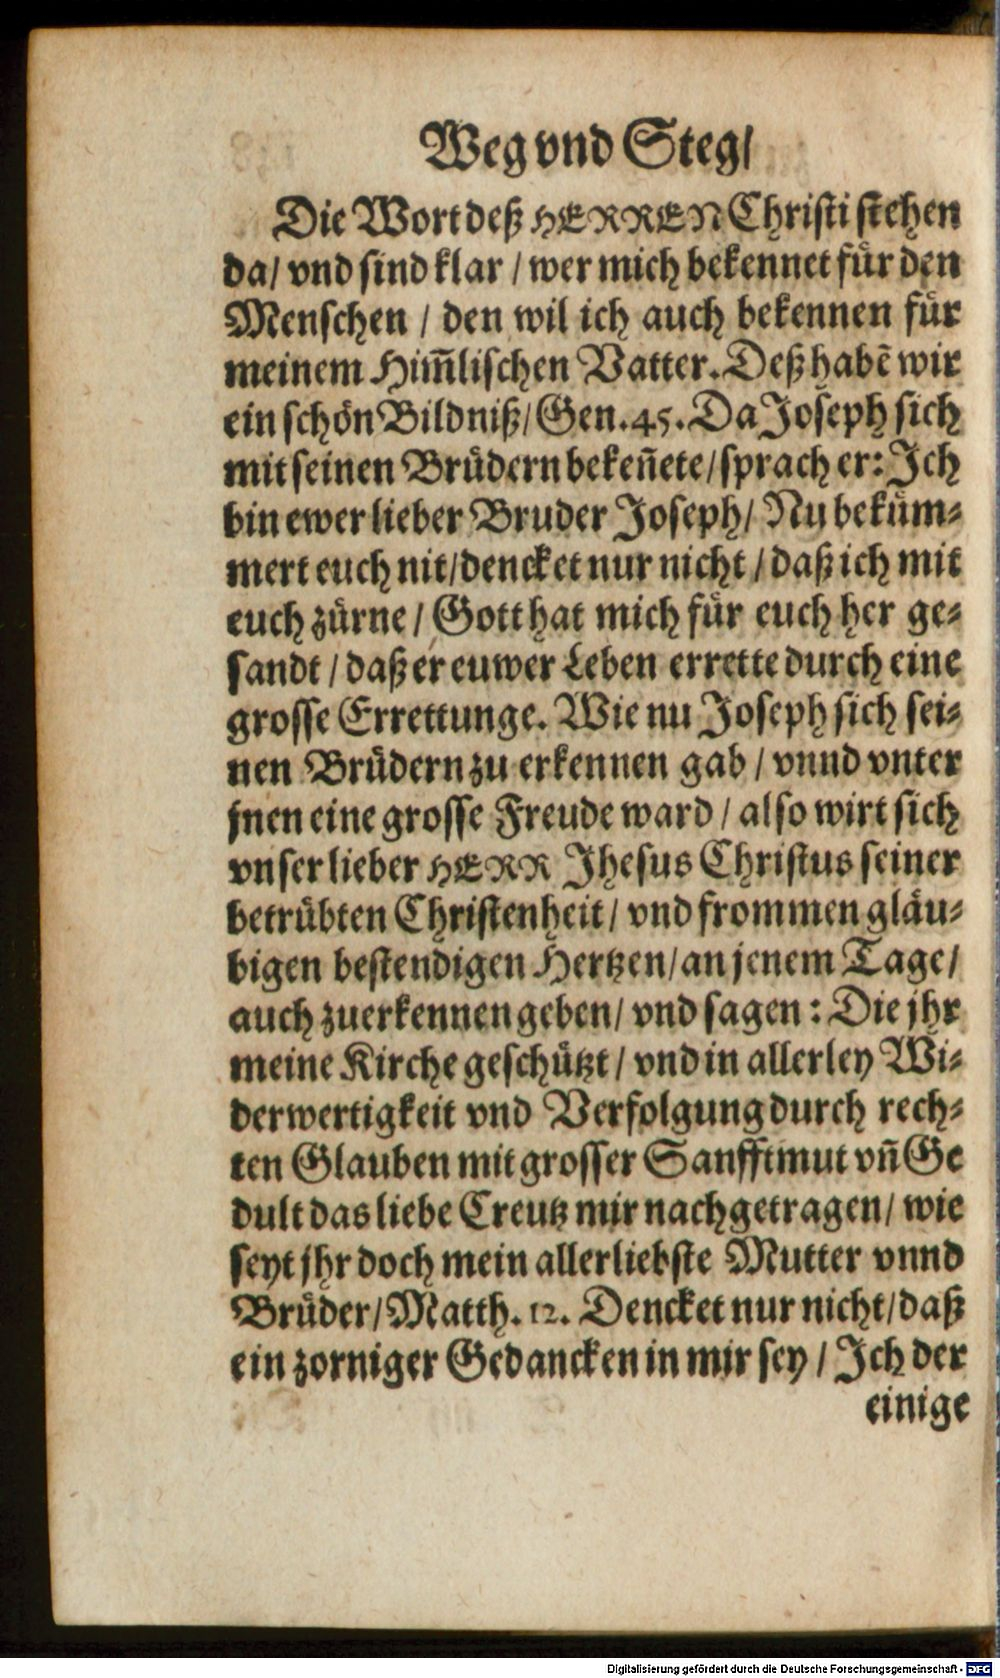 Weg vnd Steg/
Die Wort deß HERREN Christi stehen
da/ vnd sind klar / wer mich bekennet fuͤr den
Menschen / den wil ich auch bekennen fuͤr
meinem Him̃lischen Vatter. Deß habẽ wir
ein schoͤn Bildniß/ Gen. 45. Da Joseph sich
mit seinen Bruͤdern bekeñete/ sprach er: Ich
bin ewer lieber Bruder Joseph/ Nu bekuͤm⸗
mert euch nit/ dencket nur nicht / daß ich mit
euch zuͤrne / Gott hat mich fuͤr euch her ge⸗
sandt / daß er euwer Leben errette durch eine
grosse Errettunge. Wie nu Joseph sich sei⸗
nen Bruͤdern zu erkennen gab / vnnd vnter
jnen eine grosse Freude ward / also wirt sich
vnser lieber HERR Jhesus Christus seiner
betruͤbten Christenheit / vnd frommen glaͤu⸗
bigen bestendigen Hertzen/ an jenem Tage/
auch zuerkennen geben/ vnd sagen: Die jhr
meine Kirche geschuͤtzt / vnd in allerley Wi⸗
derwertigkeit vnd Verfolgung durch rech⸗
ten Glauben mit grosser Sanfftmut vñ Ge
dult das liebe Creutz mir nachgetragen/ wie
seyt jhr doch mein allerliebste Mutter vnnd
Bruͤder/ Matth. 12. Dencket nur nicht/ daß
ein zorniger Gedancken in mir sey / Ich der
einige
Digitalisierung gefördert durch die Deutsche Forschungsgemeinschaft - DFG